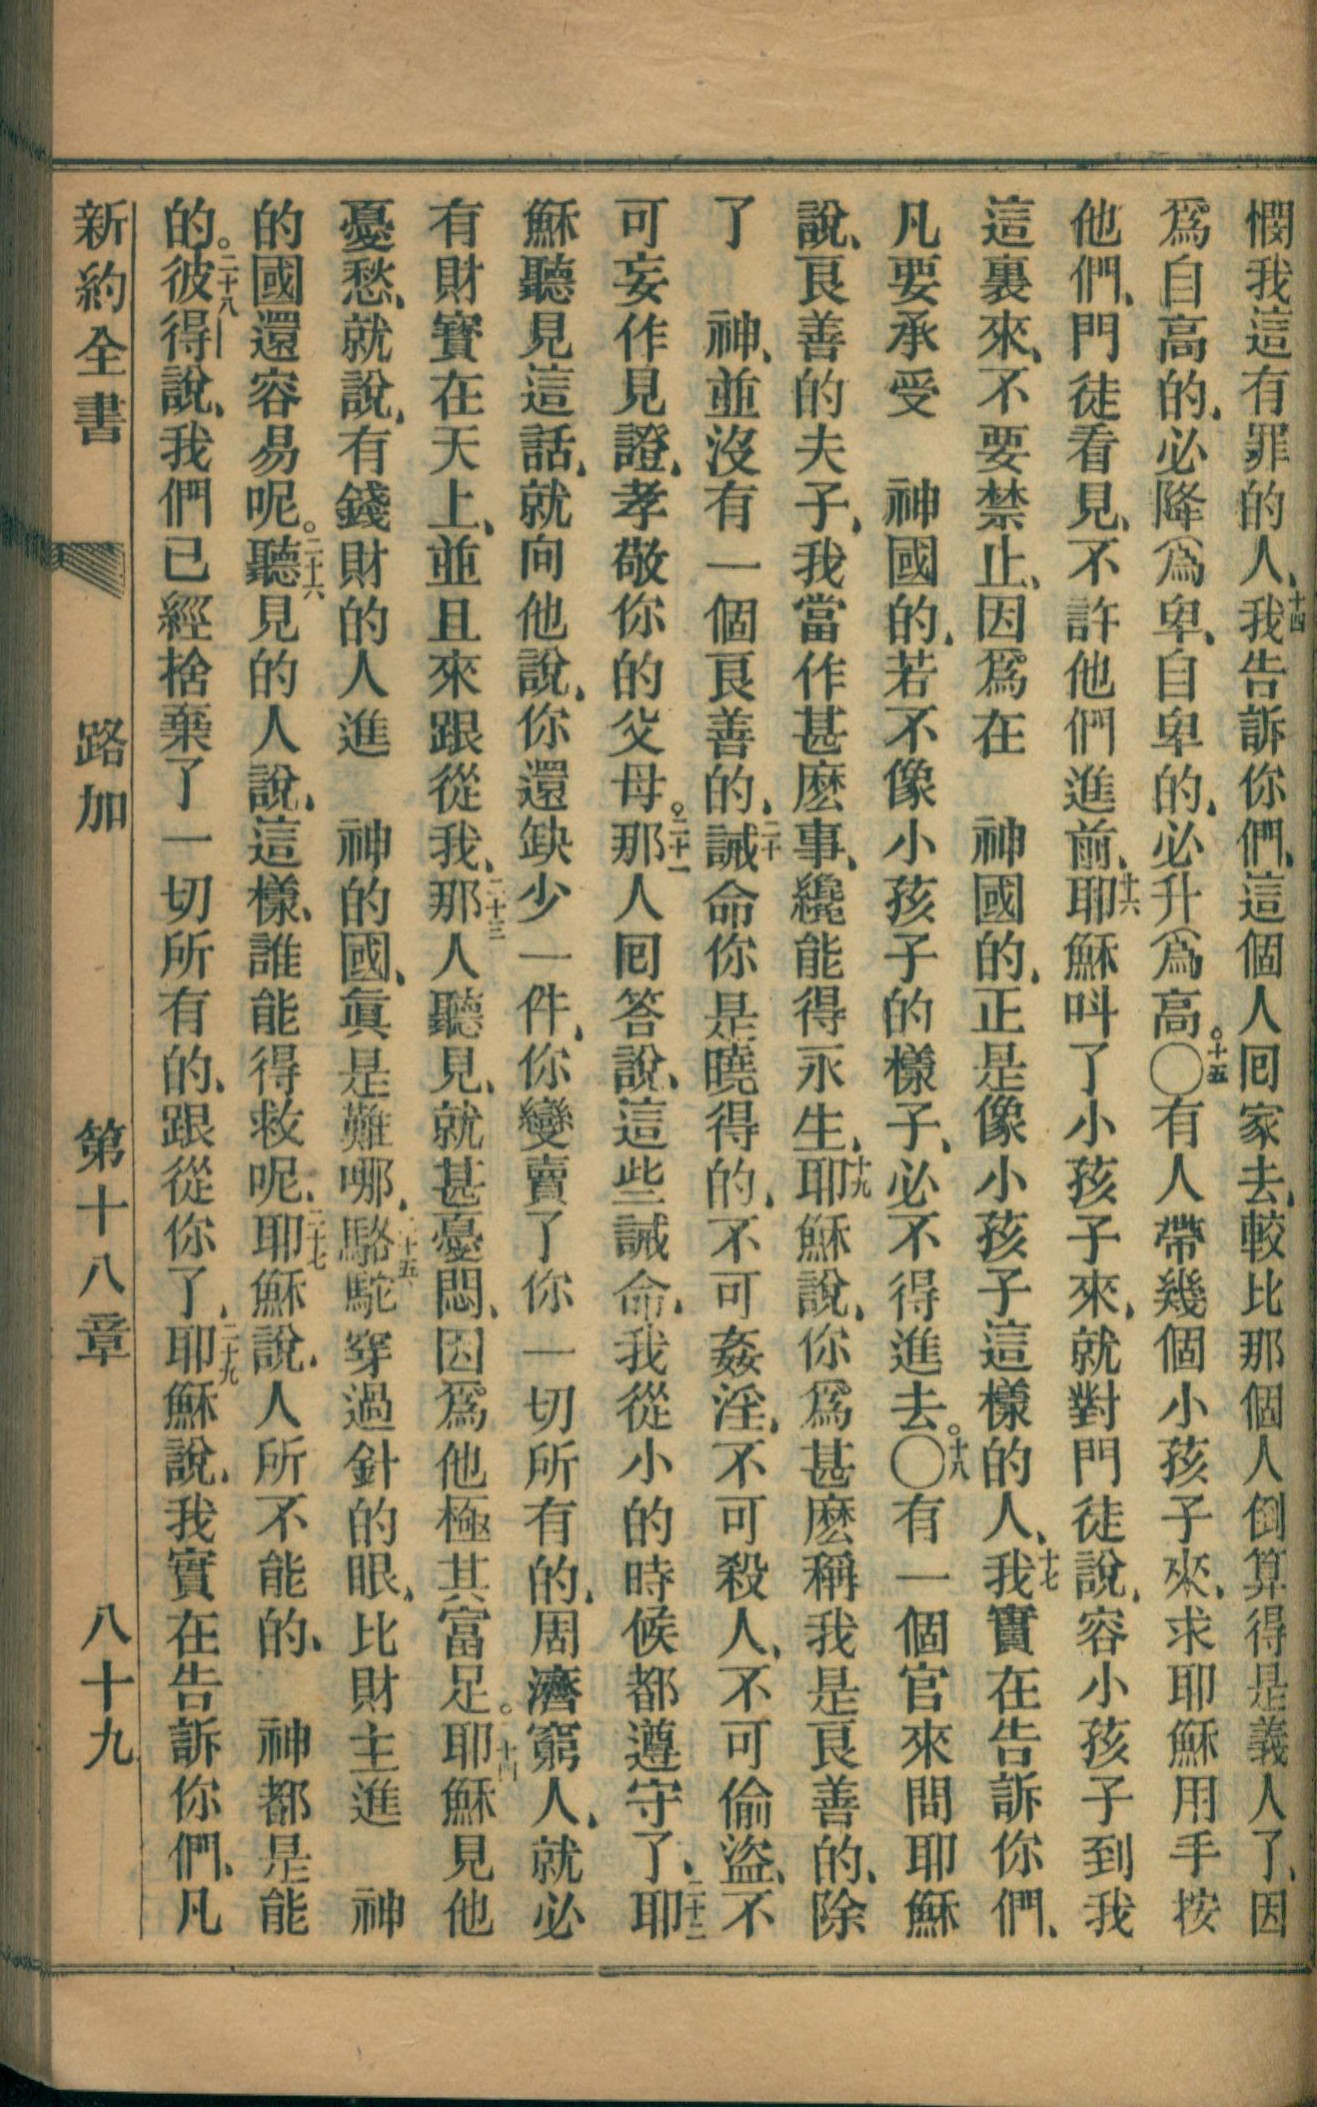 憫我這有罪的人、十四我告訴你們、這個人囘家去、較比那個人倒算得是義人了、因
爲自高的、必降爲卑、自卑的、必升爲高。十五〇有人帶幾個小孩子來、求耶穌用手按
他們、門徒看見、不許他們進前、十六耶穌呌了小孩子來、就對門徒說、容小孩子到我
這裏來、不要禁止、因爲在　神國的、正是像小孩子這樣的人、十七我實在告訴你們、
凡要承受　神國的、若不像小孩子的樣子、必不得進去。十八〇有一個官來問耶穌
說、良善的夫子、我當作甚麽事、纔能得永生、十九耶穌說、你爲甚麽稱我是良善的、除
了　神、並沒有一個良善的、二十誡命你是曉得的、不可姦淫、不可殺人、不可偷盜、不
可妄作見證、孝敬你的父母。二十一那人囘答說、這些誡命、我從小的時候都遵守了、二十二耶
穌聽見這話、就向他說、你還缺少一件、你變賣了你一切所有的、周濟窮人、就必
有財寶在天上、並且來跟從我、二十三那人聽見、就甚憂悶、因爲他極其富足。二十四耶穌見他
憂愁、就說、有錢財的人進　神的國、眞是難哪、二十五駱駝穿過針的眼、比財主進　神
的國還容易呢。二十六聽見的人說、這樣、誰能得救呢、二十七耶穌說、人所不能的、　神都是能
的。二十八彼得說、我們已經捨棄了一切所有的、跟從你了、二十九耶穌說、我實在告訴你們、凡
新約全書　路加　第十八章　八十九